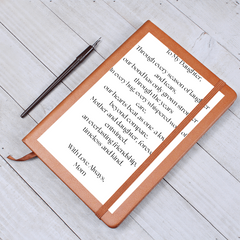 To My Daughter,
Through every season of laughter
and tears,
our bond has only grown stronger
through the years
every hug, every whispered
care,
our hearts beat as one a
beyond compare.
Mother and daughter, forever
entwined,
an everlasting friendship,
timeless and kind.
With Love Always,
Mom